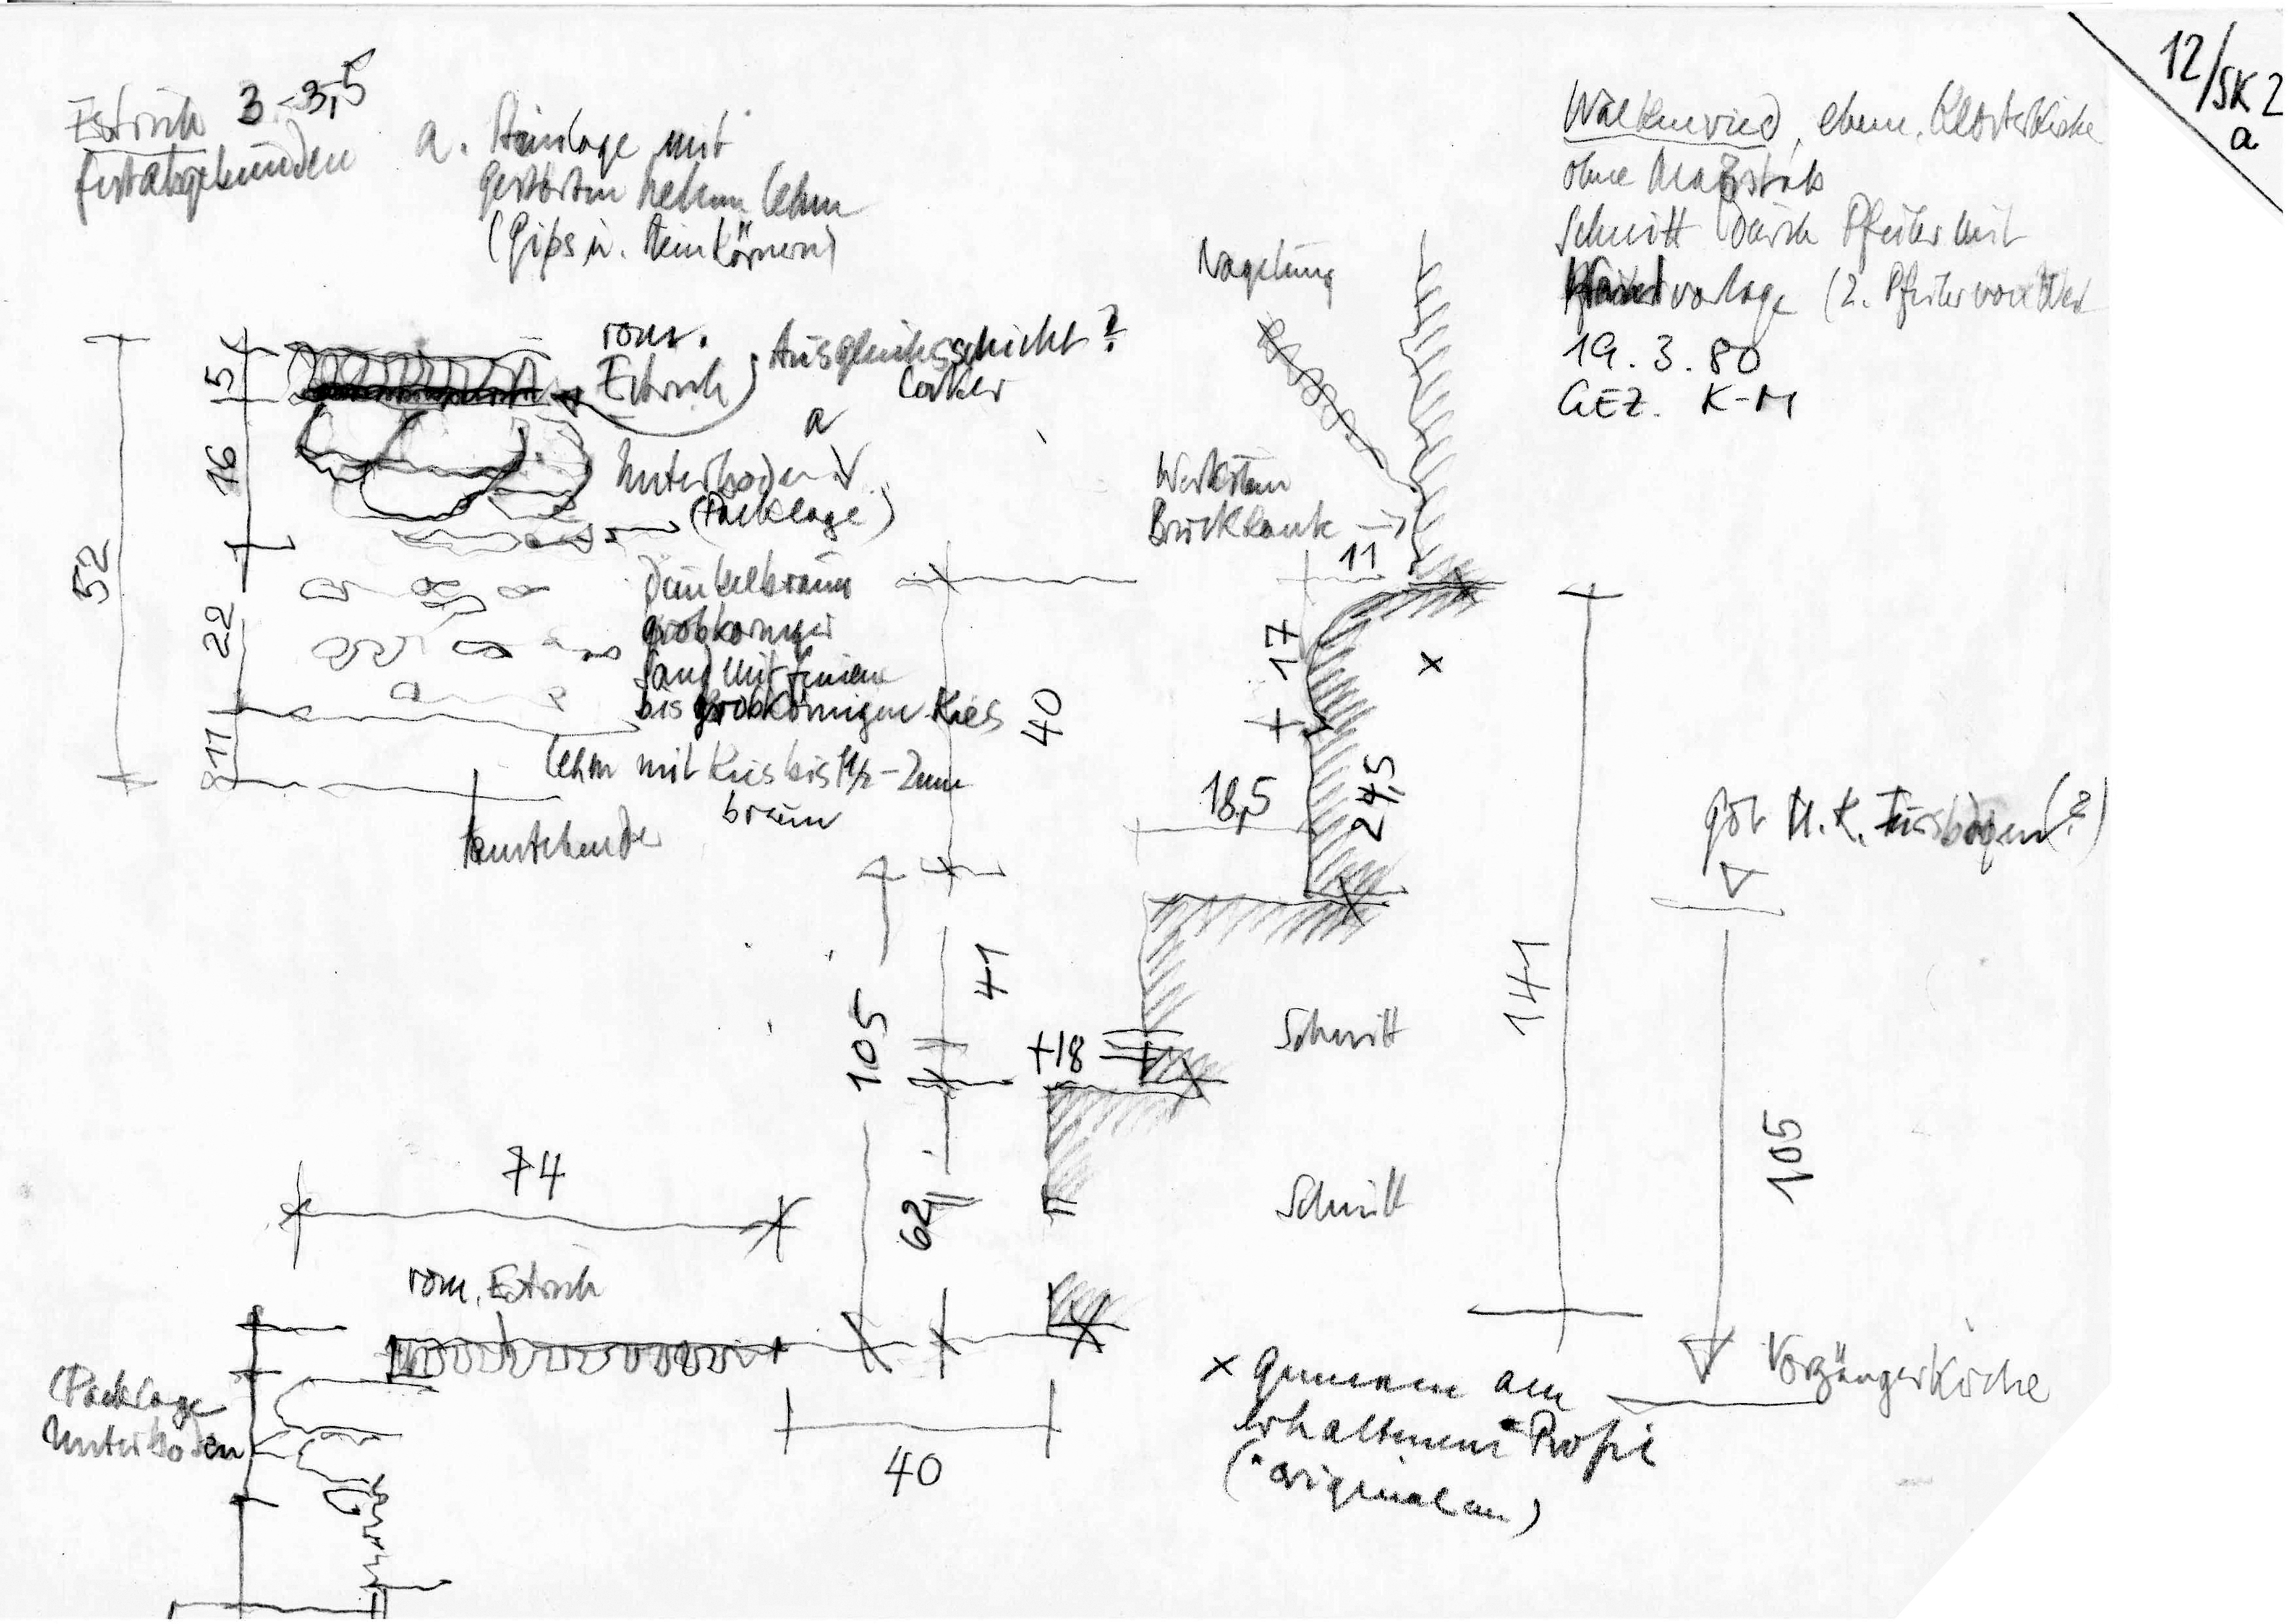 12/SK2
a
Estrich 3-3,5
fest abgebunden
a. Steinlage mit
gestörtem Lehm
(Gips u. Steinkörnern)
Walkenried, ehem. Klosterkirche
ohne Maßstab
Schnitt durch Pfeiler mit
vorlage (2. Pfeiler von West
19.3.80
GEZ. K-M
Nagelung
rom.
Estrich
Ausgleichsschicht?
locker
a
Unterboden
(Packlage)
Werkstein
Bruchkante
11
5
16
52
22
11
dunkelbrauner
grobkorniger
Sand mit feinem
bis grobkörnigen Kies
Lehm mit Kies bis 1 1/2 - 2 mm
braun
anstehender
40
17
x
18,5
24,5
got. U.K. Fussboden (?)
41
105
141
+18
Schnitt
105
74
62
Schnitt
rom. Estrich
(Packlage
Unterboden
40
Vorgängerkirche
x genommen am
erhaltenem Profil
(* original an)